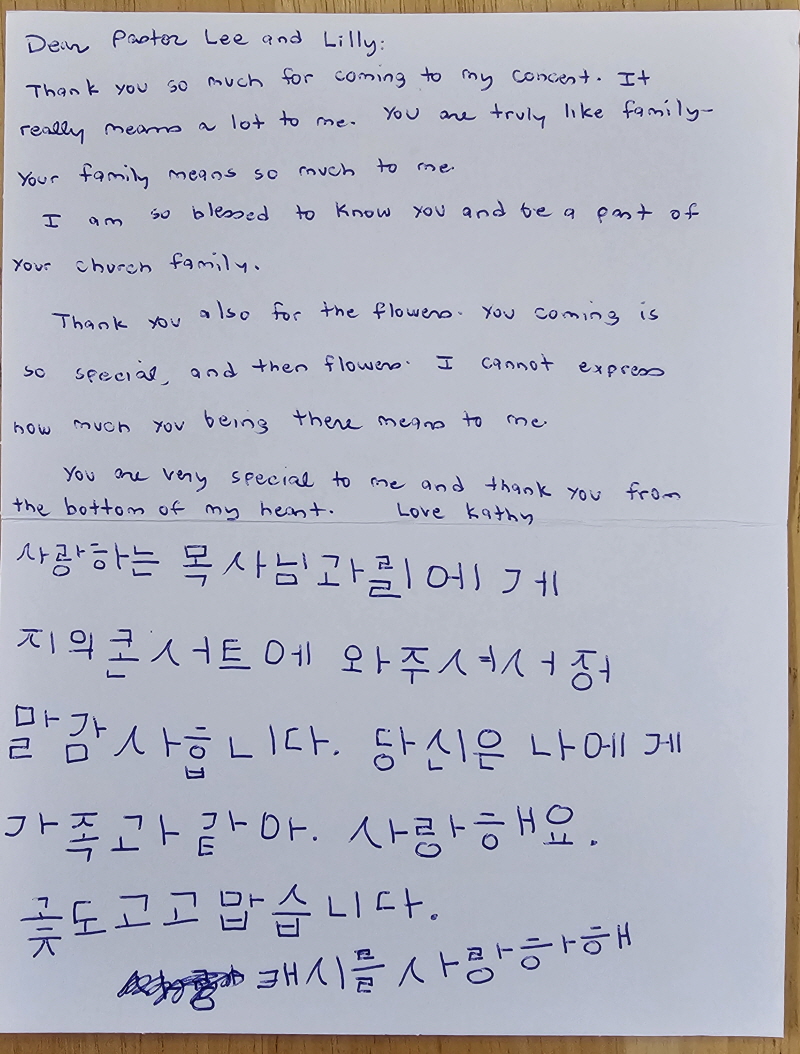 Dear Pastor Lee and Lilly:
Thank you so much for coming to my concert. It
really means a lot to me. You are truly like family-
Your family means so much to me.
I am so blessed to know you and be a part of
your church family.
Thank you also for the flowers. You coming is
so special, and then flowers. I cannot express
how much you being there means to me.
You are very special to me and thank you from
the bottom of my heart. Love Kathy
사랑하는 목사님과 릴리에게
지의 콘서트에 와주셔서 정
말 감사합니다. 당신은 나에게
가족과 같아. 사랑해요.
꽃도 고고맙습니다.
캐시를 사랑하해